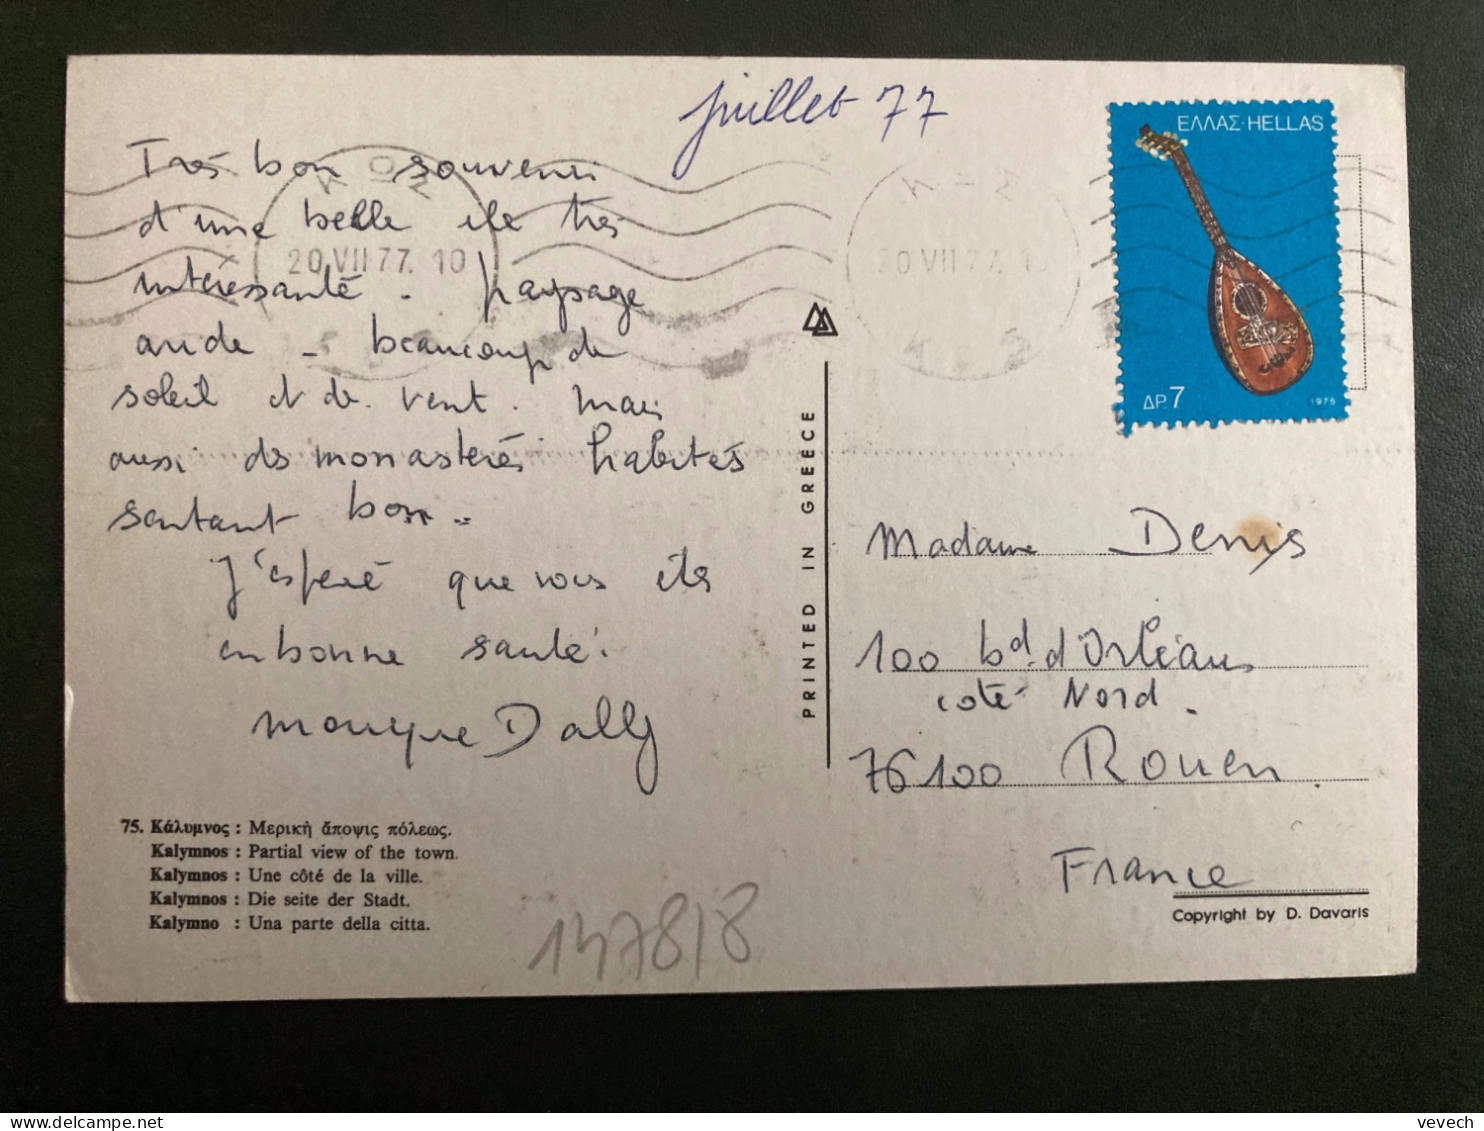 juillet 77
Très bon souvenir
d'une belle ile très
intéressante. Paysage
aride - beaucoup de
soleil et de vent. Mais
aussi des monastères habités
sentant bon..
J'espère que vous êtes
en bonne santé.
Monique Dally
20 VII 77. 10
20 VII 77. 1
ΕΛΛΑΣ·HELLAS
ΔΡ.7
1975
PRINTED IN GREECE
Madame Denis
100 bd. d'Orléans
coté Nord.
76100 Rouen
France
Copyright by D. Davaris
75. Κάλυμνος : Μερικὴ ἄποψις πόλεως.
Kalymnos : Partial view of the town.
Kalymnos : Une côté de la ville.
Kalymnos : Die seite der Stadt.
Kalymno : Una parte della citta.
1478/8
vevech